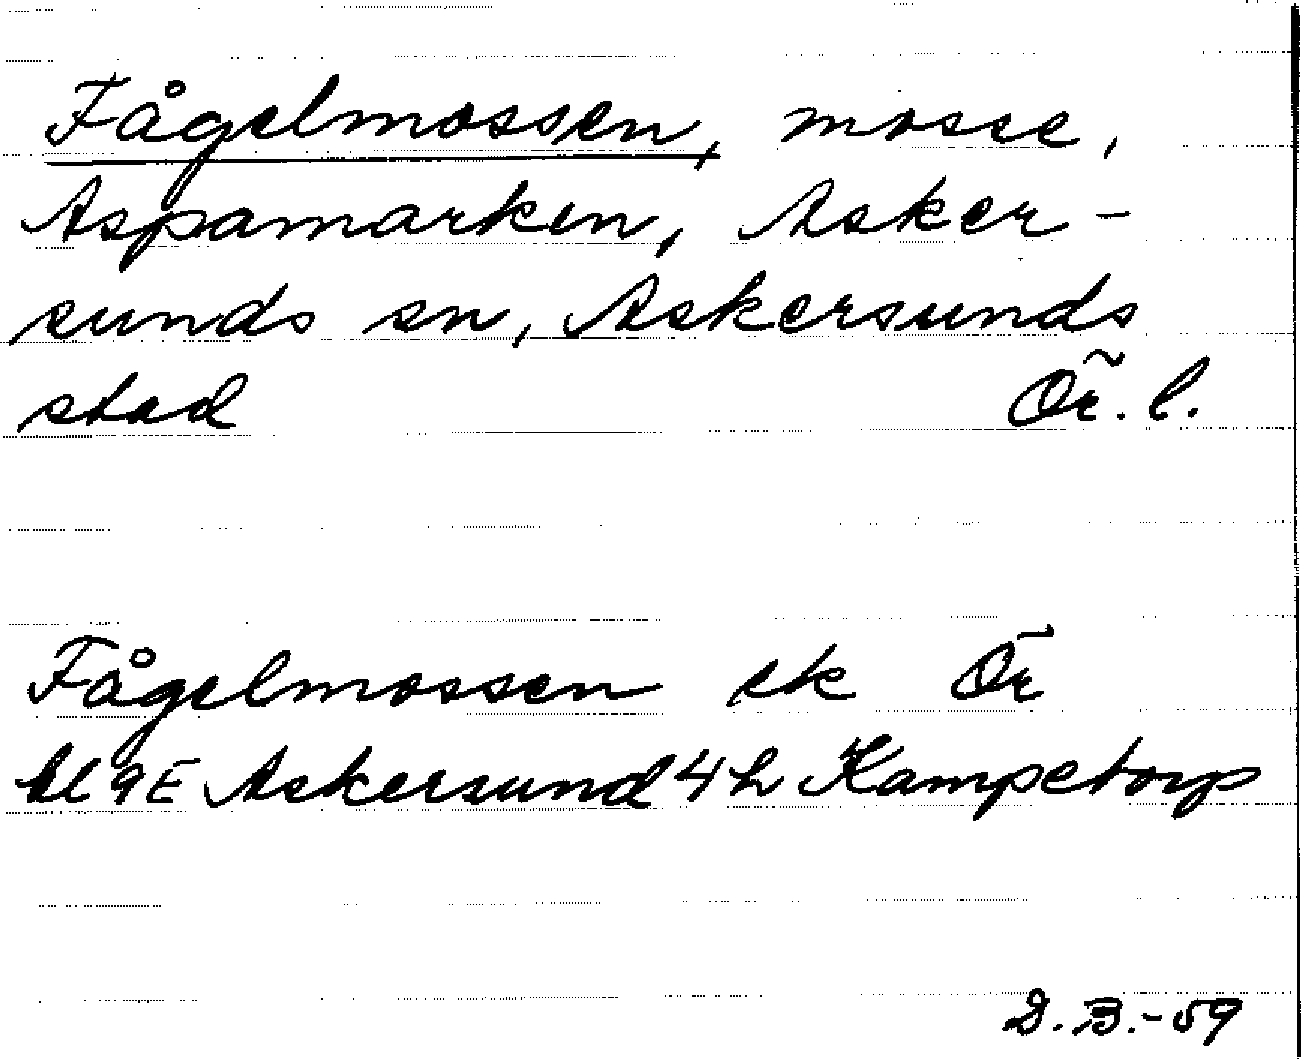 Fågelmossen, mosse,
Aspamarken, Asker-
sunds sn, Askersunds
stad Ör. l.
Fågelmossen ek Ör
bl 9E Askersund 4h Kampetorp
D. B. - 59